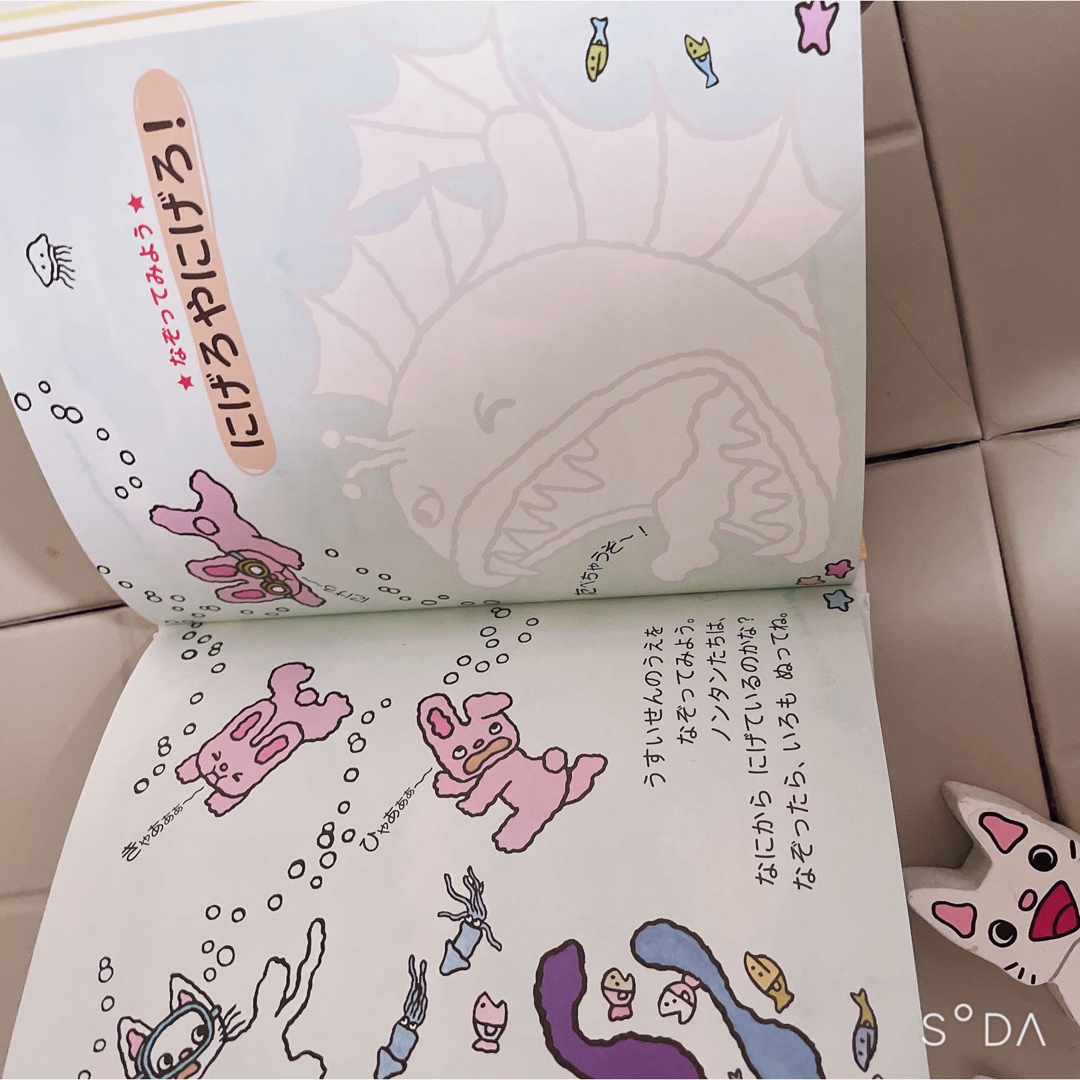 ★なぞってみよう★
にげろやにげろ！
にげろ
たべちゃうぞ〜！
きゃあぁぁぁ〜
ひゃあぁぁぁ〜
うすいせんのうえを
なぞってみよう。
ノンタンたちは、
なにから にげているのかな?
なぞったら、いろも ぬってね。
S°DA